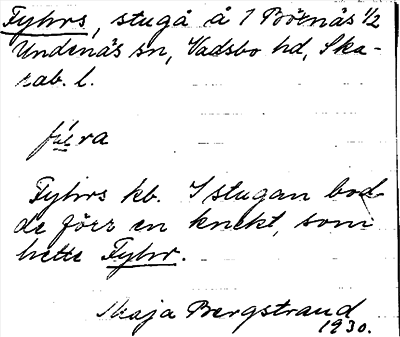 Fyhrs, stuga å 1 Böönäs 1/2
Undenäs sn, Vadsbo hd, Ska-
rab. l.
fu̱ra
Fyhrs kb. I stugan bod-
de förr en knekt, som
hette Fyhr.
Maja Bergstrand
1930.